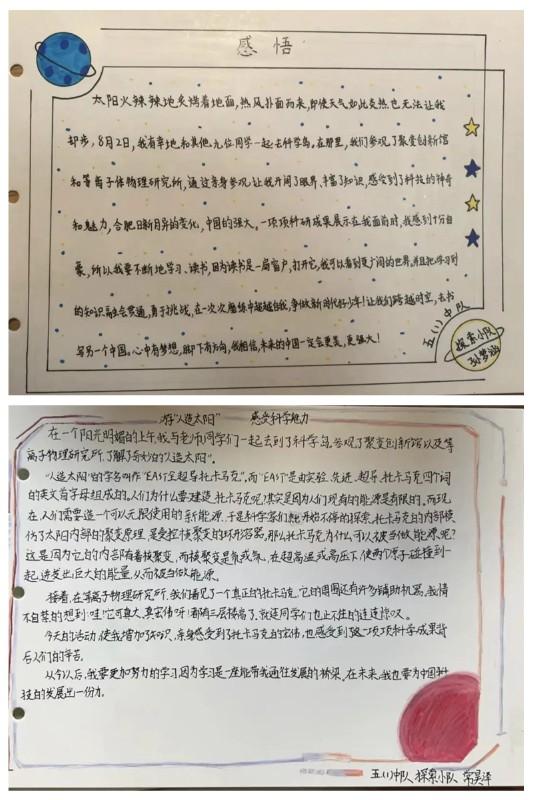 感悟
太阳火辣辣地炙烤着地面,热风扑面而来,即使天气如此炎热,也无法让我
却步,8月2日,我有幸地和其他九位同学一起去科学岛。在那里,我们参观了聚变创新馆
和等离子体物理研究所,通过亲身参观,让我开阔了眼界、丰富了知识,感受到了科技的神奇
和魅力,合肥日新月异的变化,中国的强大。一项项科研成果展示在我面前时,我感到十分自
豪,所以我要不断地学习、读书,因为读书是一扇窗户,打开它,我可以看到更广阔的世界,并且把学习到
的知识融会贯通,勇于挑战,在一次次磨练中超越自我,争做新时代好少年!让我们跨越时空,去书
写另一个中国。心中有梦想,脚下有方向,我相信,未来的中国一定会更美,更强大!
五(1)中队
探索小队
孙梦涵
游“人造太阳” 感受科学魅力
在一个阳光明媚的上午,我与老师同学们一起去到了科学岛,参观了聚变创新馆以及等
离子物理研究所,了解了奇妙的“人造太阳”。
“人造太阳”的学名叫作“EAST全超导托卡马克”,而“EAST”是由实验、先进、超导、托卡马克四个词
的英文首字母组成的。人们为什么要建造托卡马克呢?其实是因为人们现有的能源是有限的,而现
在,人们需要造一个可以无限使用的新能源,于是科学家们就开始不停的探索。托卡马克的内部模
仿了太阳内部的聚变原理,是受控核聚变的环形容器,那么托卡马克为什么可以被当做能源呢?
这是因为它的内部有着核聚变,而核聚变是氘或氚,在超高温或高压下,使两个原子碰撞到一
起,迸发出巨大的能量,从而被当做能源。
接着,在等离子物理研究所,我们看见了一个真正的托卡马克,它的周围还有许多辅助机器,我情
不自禁的想到:哇!它可真大,真宏伟呀!都有三层楼高了,就连同学们也止不住的连连惊叹。
今天的活动,使我增加了知识,亲身感受到了托卡马克的宏伟,也感受到了这一项项科学成果背
后人们的辛苦。
从今以后,我要更加努力的学习,因为学习是一座能带我通往发展的桥梁,在未来,我也要为中国科
技的发展出一份力。
五(1)中队 探索小队 常昊泽